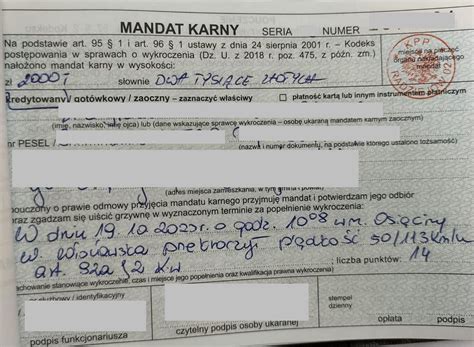 MANDAT KARNY SERIA NUMER
Na podstawie art. 95 § 1 i art. 96 § 1 ustawy z dnia 24 sierpnia 2001 r. – Kodeks
postępowania w sprawach o wykroczenia (Dz. U. z 2018 r. poz. 475, z późn. zm.)
nałożono mandat karny w wysokości:
miejsce na pieczęć
organu nakładającego
mandat
KPP
zł 2000 słownie DWA TYSIĄCE ZŁOTYCH
kredytowany/ gotówkowy / zaoczny – zaznaczyć właściwy
płatność kartą lub innym instrumentem płatniczym
(imię, nazwisko, imię ojca) lub (dane wskazujące sprawcę wykroczenia – osobę ukaraną mandatem karnym zaocznym)
nr PESEL /
(nazwa i nr dokumentu, na podstawie którego ustalono tożsamość)
(adres miejsca zamieszkania, w tym gmina i powiat)
pouczony o prawie odmowy przyjęcia mandatu karnego przyjmuję mandat i potwierdzam jego odbiór
oraz zgadzam się uiścić grzywnę w wyznaczonym terminie za popełnienie wykroczenia:
W dniu 19.10.2023r o godz. 10 08 w m. Osięciny
przekroczył prędkość 50/113 km/h
art. 92a § 2 kw
liczba punktów: 14
zachowanie stanowiące wykroczenie, czas i miejsce jego popełnienia oraz kwalifikacja prawna wykroczenia)
nr służbowy / identyfikacyjny
stempel
dzienny
podpis funkcjonariusza
czytelny podpis osoby ukaranej
opłata
podpis